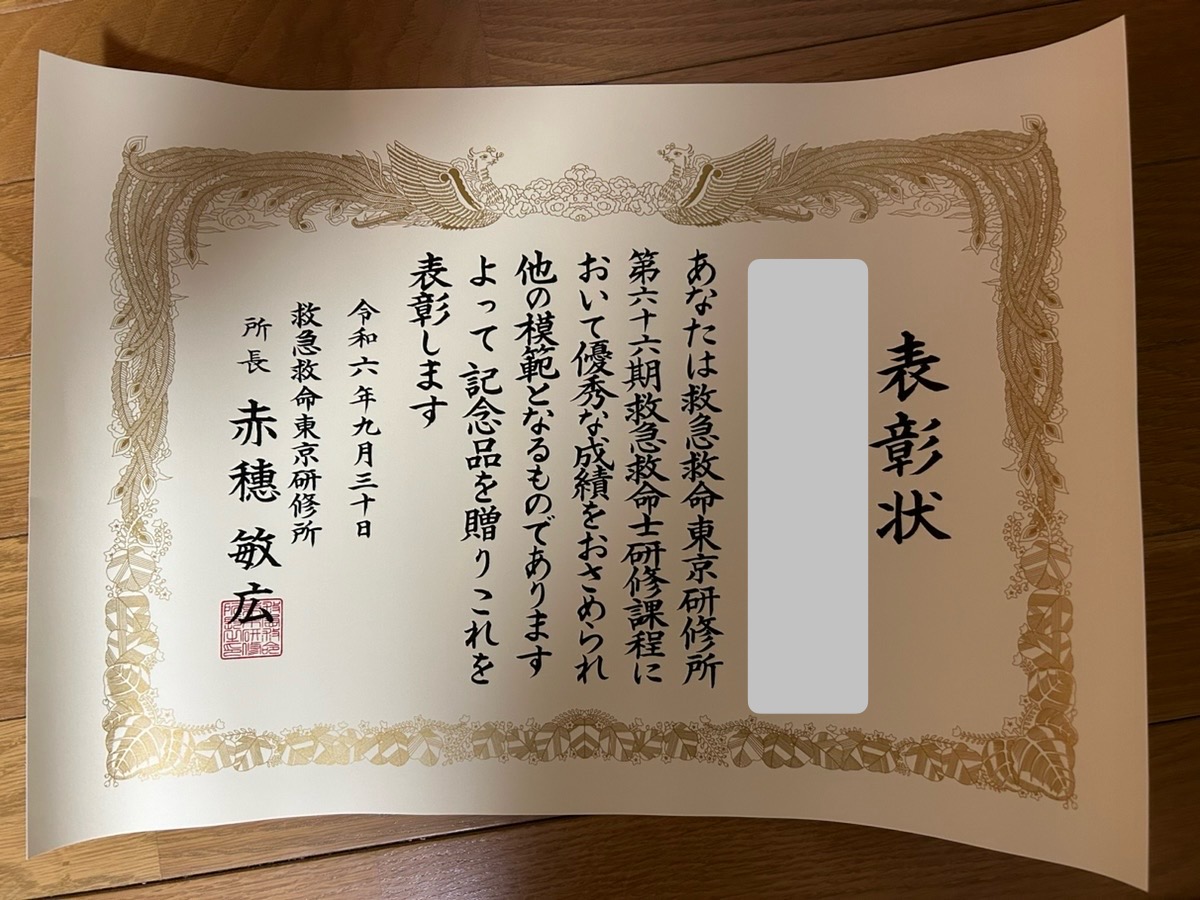 表彰状
あなたは救急救命東京研修所
第六十六期救急救命士研修課程に
おいて優秀な成績をおさめられ
他の模範となるものであります
よって記念品を贈りこれを
表彰します
令和六年九月三十日
救急救命東京研修所
所長 赤穗敏広